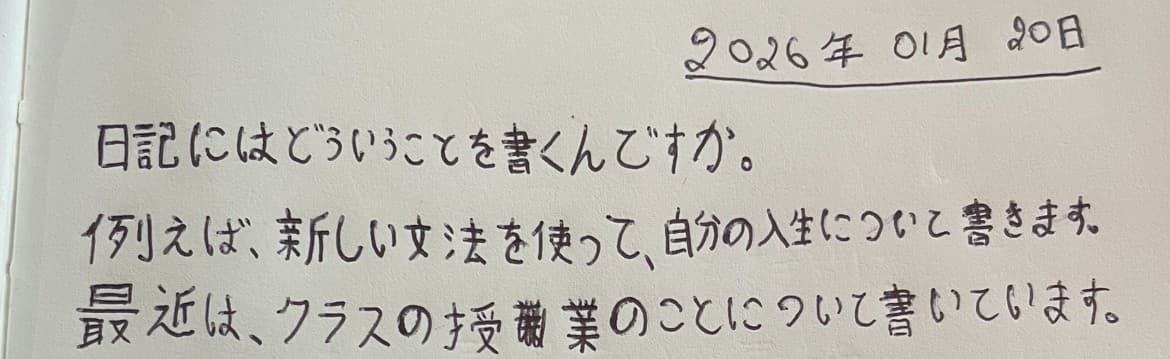 2026年 01月 20日
日記にはどういうことを書くんですか。
例えば、新しい文法を使って、自分の人生について書きます。
最近は、クラスの授業のことについて書いています。